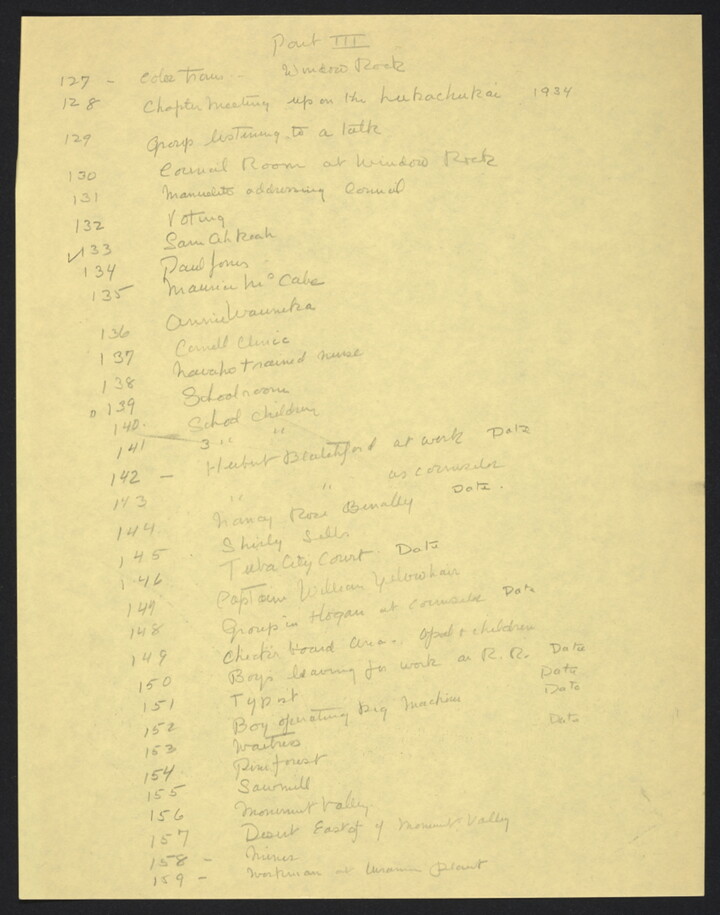 Part III
127 - Window Rock
128 Chapter Meeting up on the Lukachukai 1934
129 Group listening to a talk
130 Council Room at Window Rock
131 Manuelito addressing Council
132 Voting
✓133 Sam Ahkeah
134 Paul Jones
135 Maurice McCabe
136 Annie Wauneka
137 Cornell Clinic
138 Navaho trained nurse
139 Schoolroom
140. School children
141 3 " "
142 - Herbert Blatchford at work Date
143 " " as counselor
144 Nancy Rose Benally Date.
145 Shirly Sells
146 Tuba City Court Date
149 Captain William Yellowhair
148 Group in Hogan at counselor Date
149 Checker board area. Opal + children
150 Boys leaving for work on R.R. Date
151 Typist Date
152 Boy operating big Machine Date
153 Waitress Date
154. Pine forest
155 Sawmill
156 Monument Valley
157 Desert East of Monument Valley
158 - Mines
159 - Workman at Uranium plant